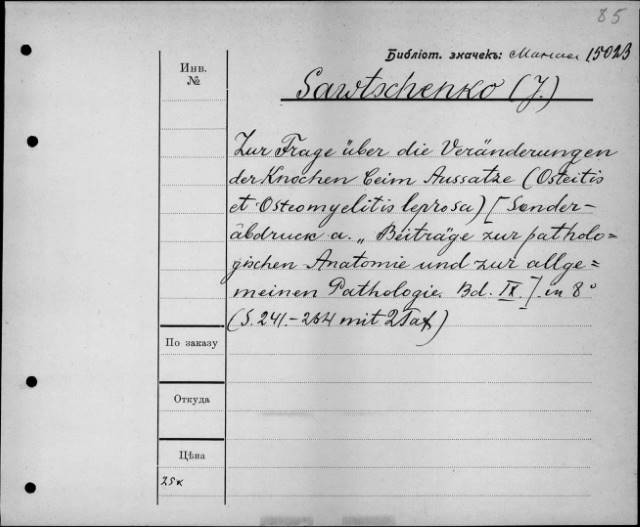 85
Библіот. значекъ: 15023
Инв.
№
Sawtschenko (J.)
Zur Frage über die Veränderungen
der Knochen beim Aussatze (Osteitis
et Osteomyelitis leprosa) [Sonder-
abdruck a. „Beiträge zur patholo=
gischen Anatomie und zur allge=
meinen Pathologie. Bd. IX.]. in 8°
(S. 241.-264 mit 2 Taf)
По заказу
Откуда
Цѣна
25к